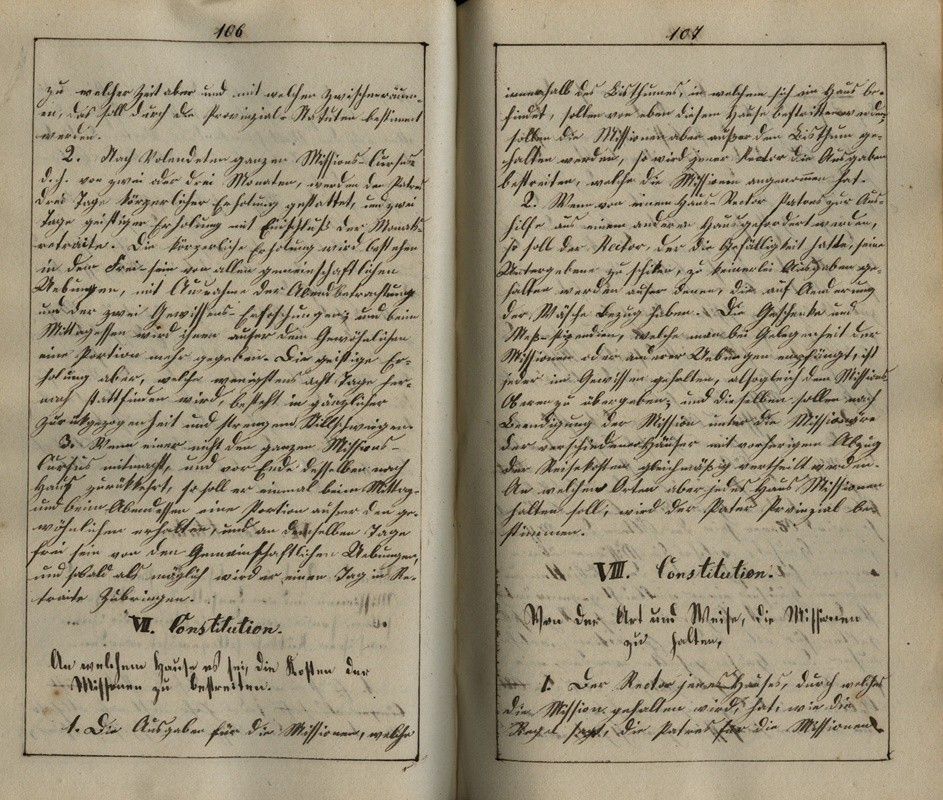 106
zu welcher Zeit aber und mit welchen Zwischenräum-
en, das soll durch die Provinzial-Statuten bestimmt
werden.
2. Nach Volendeten ganzen Missions-Cursus
d.h. von zwei oder drei Monaten, werden den Patres
drei Tage körperlicher Erholung gestattet, und zwei
Tage geistiger Erholung mit Einschluß der Monats-
retraite. Die körperliche Erholung wird bestehen
in dem Frei-sein von allen gemeinschaftlichen
Uebungen, mit Ausnahme der Abendbetrachtung
und der zwei Gewissens-Erforschungen; und beim
Mittagessen wird ihnen außer dem Gewöhnlichen
eine Portion mehr gegeben. Die geistige Er-
holung aber, welche wenigstens acht Tage her-
nach stattfinden wird, besteht in gänzlicher
Zurückgezogenheit und strengem Stillschweigen.
3. Wenn einer nicht den ganzen Missions
Cursus mitmacht, und vor Ende desselben nach
Haus zurückkehrt, so soll er einmal beim Mittag-
und beim Abendessen eine Portion außer den ge-
wöhnlichen erhalten, und an demselben Tage
frei sein von den Gemeinschaftlichen Uebungen,
und sobald als möglich wird er einen Tag in Re-
traite Zubringen.
VII. Constitution.
An welchem Hause es sei, die Kosten der
Missionen zu bestreiten.
1. Die Ausgaben für die Missionen, welche
107
innerhalb des Bisthumes, in welchem sich ein Haus be-
findet, sollen von eben diesem Hause bestritten werden
sollen die Missionen aber außer dem Bisthum ge-
halten werden, so wird jener Rector die Ausgaben
bestreiten, welche die Mission angenommen hat.
2. Wenn von einem Haus-Rector Patres zur Aus-
hilfe aus einem anderen Haus gefordert werden,
so soll der Rector, der die Gefälligkeit hatte, seine
Untergebene zu schiken, zu keinerlei Ausgaben ge-
halten werden außer denen, die auf Aenderung
der Wäsche bezug haben. Die Geschenke und
Meß-Stipendien, welche man bei Gelegenheit der
Missionen oder anderer Uebungen empfängt, ist
jeder im Gewissen gehalten, alsogleich dem Missions
Oberen zu übergeben; und dieselben sollen nach
Beendigung der Mission unter die Missionäre
der verschiedenen Häuser mit vorherigem Abzug
der Reisekosten gleichmäßig vertheilt werden.
An welchen Orten aber jedes Haus Missionen
halten soll, wird der Pater Provinzial be-
stimmen.
VIII. Constitution.
Von der Art und Weise, die Missionen
zu halten.
1. Der Rector jenes Hauses, durch welches
die Mission gehalten wird, hat, wie die
Regel sagt, die Patres für die Missionen